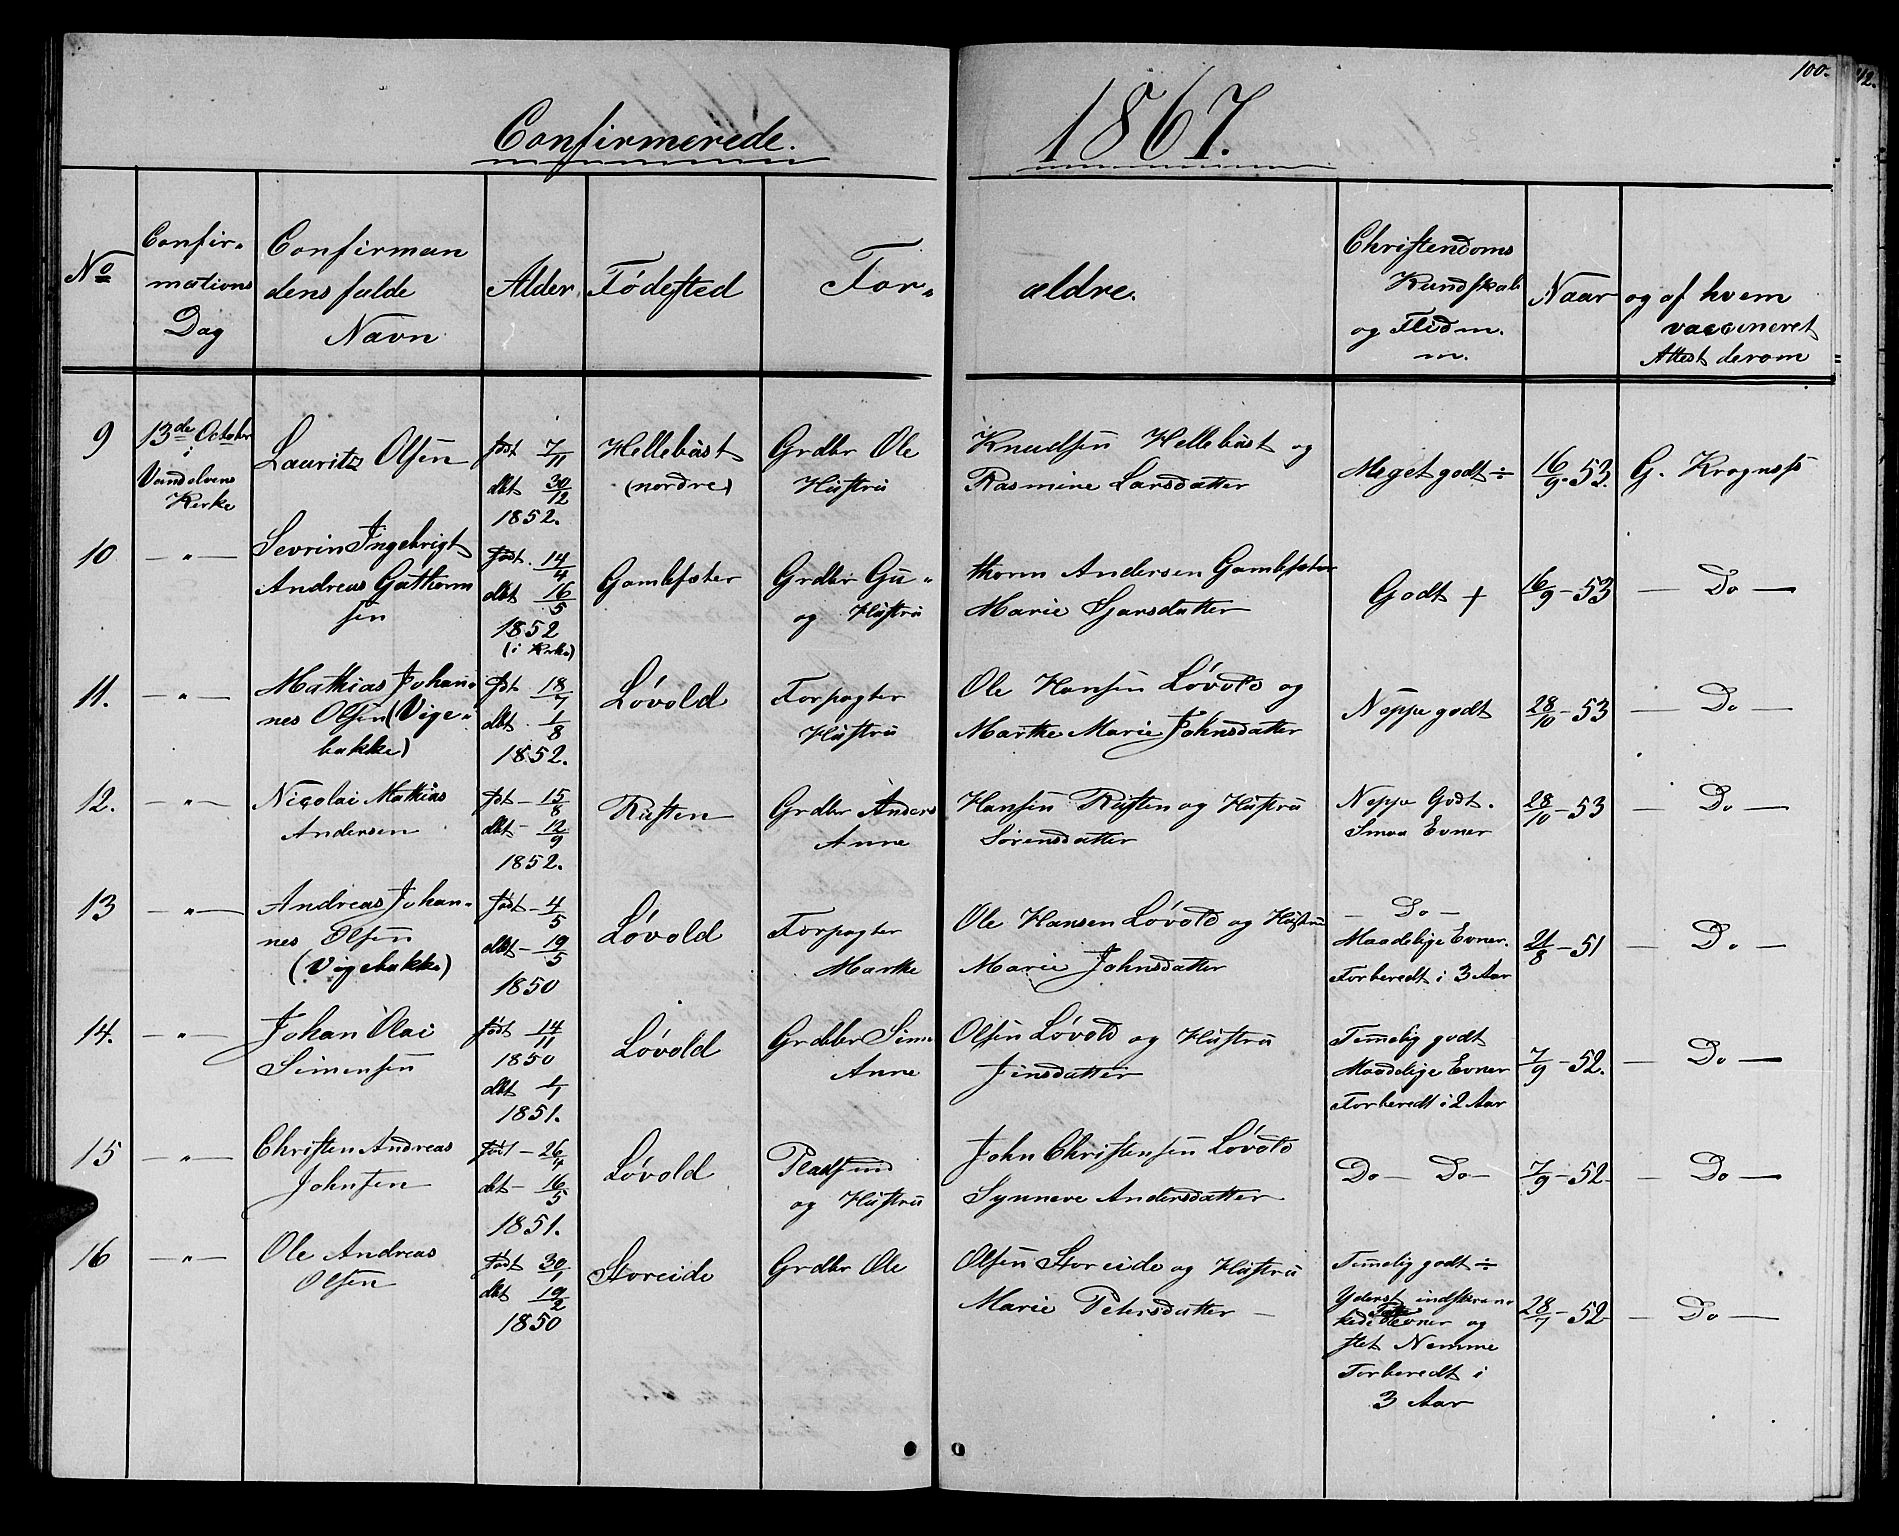 100.
Confirmerede. 1867.
No
Confir-
mations
Dag
Confirman
dens fulde
Navn
Alder
Födested
For-
ældre.
Christendoms
Kundskab
og Flid m.
m.
Naar
og af hvem
vaccineret
Attest derom
9
13de October
i
Vandelvens
Kirke
Lauritz Olsen
født 7/11
dbt 30/12
1852.
Hellebust
(nordre)
Grdbr Ole
Hustru
Knudsen Hellebust og
Rasmine Larsdatter
Meget godt ÷
16/9 - 53.
G. Krognæss
10
— " —
Sevrin Ingebrigt
Andreas Guthorm
sen
født. 14/4
dbt 16/5
1852
(i Kirke)
Gamlesæter
Grdbr Gu-
og Hustru
thorm Andersen Gamlesæter
Marie Sjursdatter
Godt +
16/9 - 53
— Do —
11.
— " —
Mathias Johan-
nes Olsen (Vige-
bakke)
fdt - 18/7
dbt. 1/8
1852.
Lóvold
Forpagter
Hustru
Ole Hansen Lóvold og
Marthe Marie Johnsdatter
Neppe godt
28/10 - 53
— Do —
12.
— " —
Nicolai Mathias
Andersen
fdt - 15/8
dbt - 12/9
1852.
Rusten
Grdbr Anders
Anne
Hansen Rusten og Hustru
Sörensdatter
Neppe Godt.
Smaa Evner
28/10 - 53
— Do —
13
— " —
Andreas Johan-
nes Olsen
(Vigebakke)
født - 4/5
dbt - 19/5
1850
Lóvold
Forpagter
Marthe
Ole Hansen Lóvold og Hustru
Marie Johnsdatter
— Do —
Maadelige Evner.
Forberedt i 3 Aar
21/8 - 51
— Do —
14.
— " —
Johan Olai
Simensen
født 14/11
1850
dbt 1/1
1851.
Lóvold
Grdbr Sim-
Anne
Olsen Lóvold og Hustru
Jensdatter
Temmelig godt
Maadelige Evner
Forberedt i 2 Aar
7/9 - 52.
— Do —
15
— " —
Christen Andreas
Johnsen
født - 26/4
dbt - 16/5
1851.
Lóvold
Pladsmd
og Hustru
John Christensen Lóvold
Synneve Andersdatter
Do — Do —
7/9 - 52
— Do —
16
— " —
Ole Andreas
Olsen
Født 30/1
dbt 19/2
1850
Storeide
Grdbr Ole
Olsen Storeide og Hustru
Marie Petersdatter —
Temmelig godt ÷
Yderst indskræn
kede Evner og
slet Nemme
Forberedt i
3 Aar
28/7 - 52
— Do —